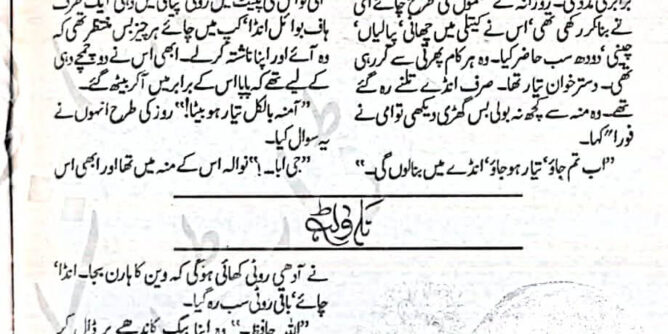 برابر کی مدد کی۔ روزانہ کے معمول کی طرح چائے امی
نے بنا کر رکھی تھی‘ اس نے کیتلی میں چھانی‘ پیالیاں‘
چینی‘ دودھ سب حاضر کیا۔ وہ ہر کام پھرتی سے کر رہی
تھی۔ دستر خوان تیار تھا۔ صرف انڈے تلنے رہ گئے
تھے۔ وہ منہ سے کچھ نہ بولی بس گھڑی دیکھی تو امی نے
فورا" کہا۔
”اب تم جاؤ‘ تیار ہو جاؤ‘ انڈے میں بنا لوں گی۔“
ہاف بوائل انڈا‘ کپ میں چائے ہر چیز بس منتظر تھی کہ
وہ آئے اور اپنا ناشتہ کرلے۔ ابھی اس نے دو چمچے دہی
کے لیے تھے کہ پاپا اس کے برابر میں آکر بیٹھ گئے۔
”آمنہ بالکل تیار ہو بیٹا!“ روز کی طرح انہوں نے
یہ سوال کیا۔
”جی ابا۔!“ نوالہ اس کے منہ میں تھا اور ابھی اس
ناولٹ
نے آدھی روٹی کھائی ہوگی کہ وین کا ہارن بجا۔ انڈا‘
چائے‘ باقی روٹی سب رہ گیا۔
”اللہ حافظ۔“ وہ اپنا بیگ کاندھے پر ڈال کر